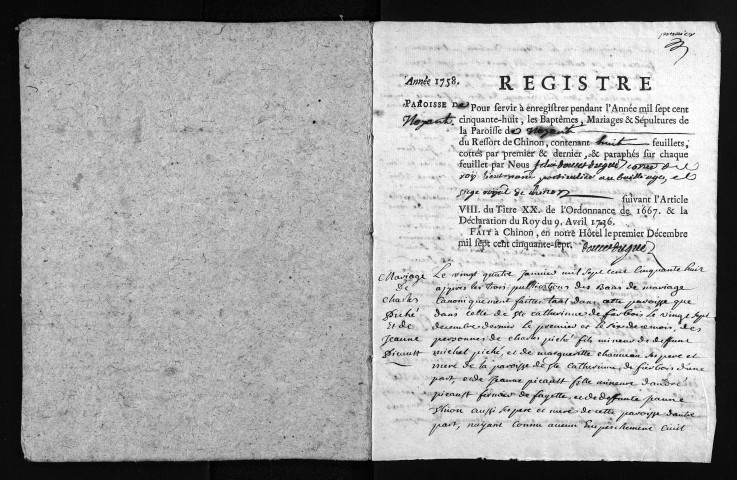 premier
Année 1758. REGISTRE
PAROISSE De Pour servir à enregistrer pendant l'Année mil sept cent
Noyant cinquante-huit, les Baptêmes, Mariages & Sépultures de
la Paroisse de Noyant
du Ressort de Chinon, contenant huit feuillets,
cottés par premier & dernier, & paraphés sur chaque
feuillet par Nous
roy lieutenant particulier au bailliage, et
siege royal de chinon suivant l'Article
VIII. du Titre XX. de l'Ordonnance de 1667. & la
Déclaration du Roy du 9. Avril 1736.
FAIT à Chinon, en notre Hôtel le premier Décembre
mil sept cent cinquante-sept.
Mariage
De
charles
Piché
Et de
Jeanne
Picault
Le vingt quatre janvier mil sept cent cinquante huit
apres les trois publications des Bans de mariage
Canoniquement faittes tant dans cette paroisse que
dans celle de ste catherinne de fierbois le vingt sept
decembre dernier le premier et le six de ce mois, des
personnes de charles piché fils mineur de deffunt
michel piché, et de margueritte chauveau ses pere et
mere de la paroisse de ste catherinne de fierbois d'une
part, et de Jeanne picault fille mineure d'andré
picault fermier de fayette, et de deffunte jeanne
aussi ses pere et mere de cette paroisse d'autre
part, n'ayant connu aucun Empeschement Civil